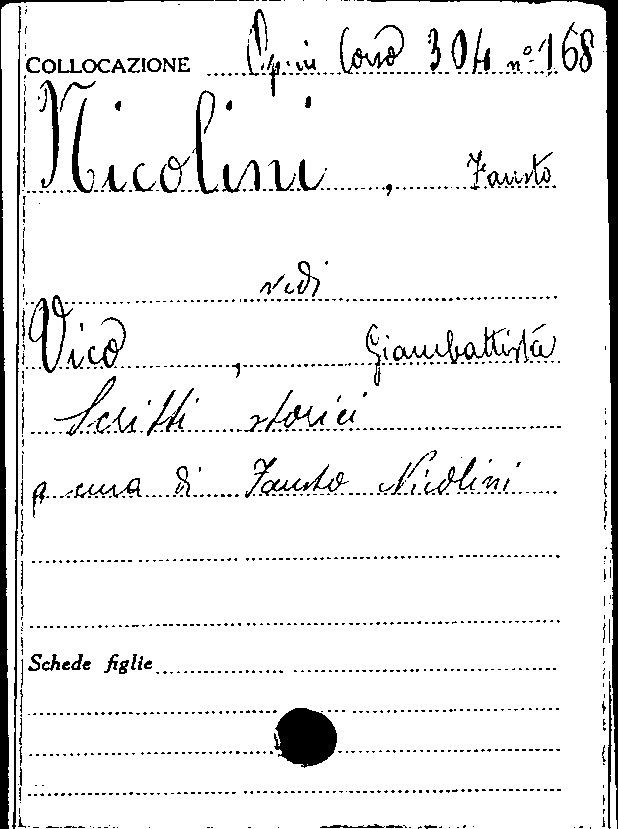 COLLOCAZIONE Op. in Corso 304 nº 168
Nicolini, Fausto
vedi
Vico, Giambattista
Scritti storici
a cura di Fausto Nicolini
Schede figlie